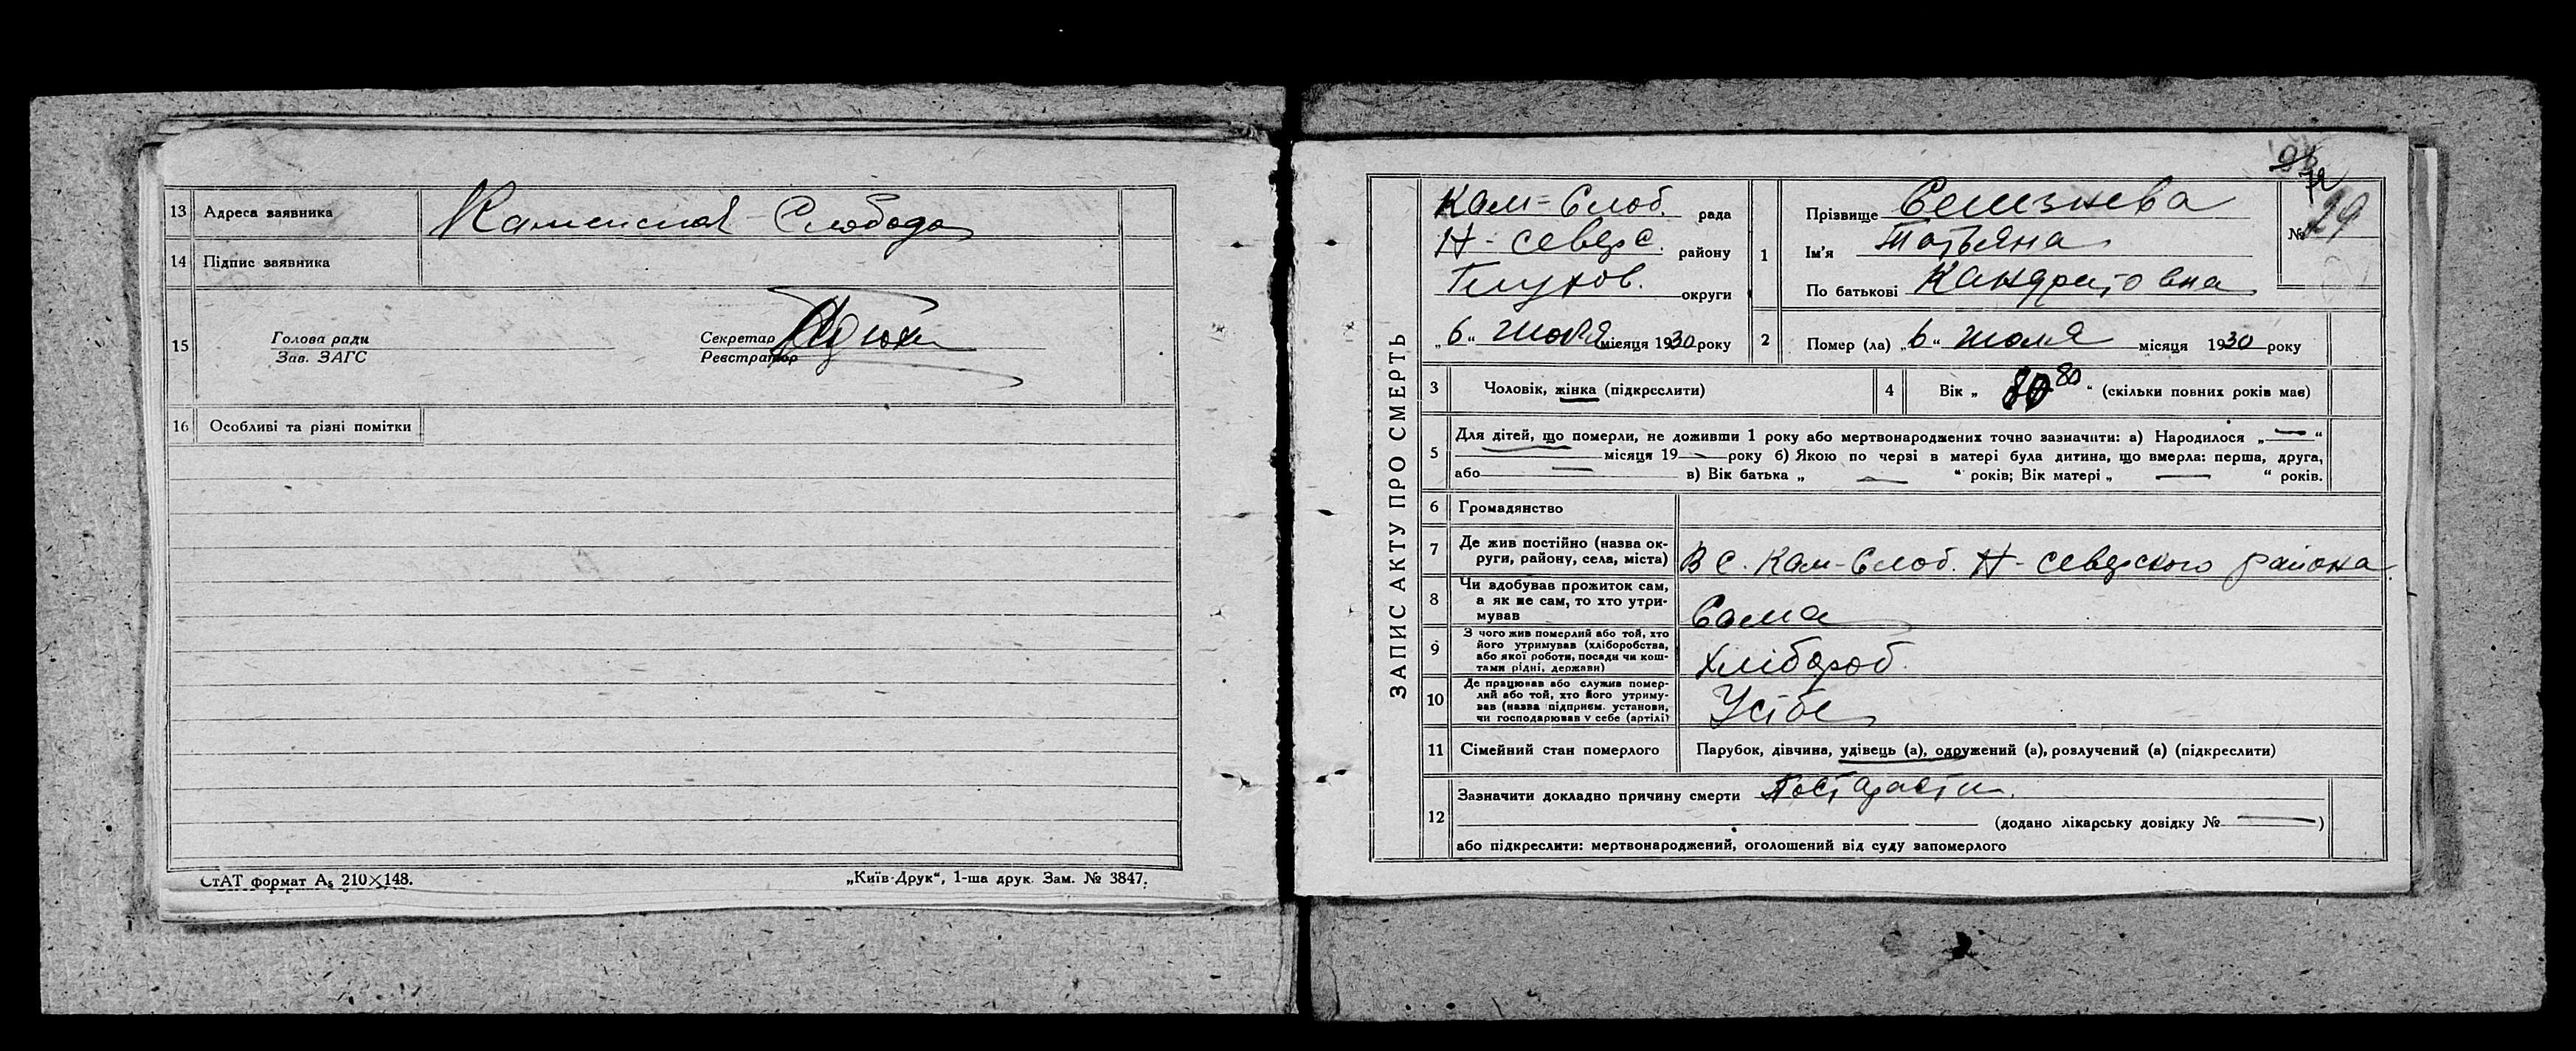 13 Адреса заявника Каменская Слобода
14 Підпис заявника
15
Голова ради
Зав. ЗАГС
Секретар
Реєстратор
16 Особливі та різні помітки
СтАТ формат А₅ 210×148.
„Київ-Друк“, 1-ша друк. Зам. № 3847.
ЗАПИС АКТУ ПРО СМЕРТЬ
Кам-Слоб. рада
Н-Северс. району
Глухов. округи
„6“ июля місяця 1930 року
1
Прізвище Селезнева
Ім'я Татьяна
По батькові Кандратовна
№ 29
2 Помер (ла) „6“ июля місяця 1930 року
3 Чоловік, жінка (підкреслити)
4 Вік „ 80 “ (скільки повних років мав)
5 Для дітей, що померли, не доживши 1 року або мертвонароджених точно зазначити: а) Народилося „—“
місяця 19— року б) Якою по черзі в матері була дитина, що вмерла: перша, друга,
або — в) Вік батька „ — “ років; Вік матері „ — “ років.
6 Громадянство
7 Де жив постійно (назва ок-
руги, району, села, міста) В с. Кам-Слоб. Н-Северского района
8 Чи здобував прожиток сам,
а як не сам, то хто утри-
мував Сама
9 З чого жив померлий або той, хто
його утримував (хліборобства,
або якої роботи, посади чи кош-
тами рідні, держави) Хлібороб
10 Де працював або служив помер-
лий або той, хто його утриму-
вав (назва підприєм. установи,
чи господарював у себе (артілі) Усібе
11 Сімейний стан померлого Парубок, дівчина, удівець (а), одружений (а), розлучений (а) (підкреслити)
12 Зазначити докладно причину смерти Постарасти
(додано лікарську довідку № — )
або підкреслити: мертвонароджений, оголошений від суду запомерлого